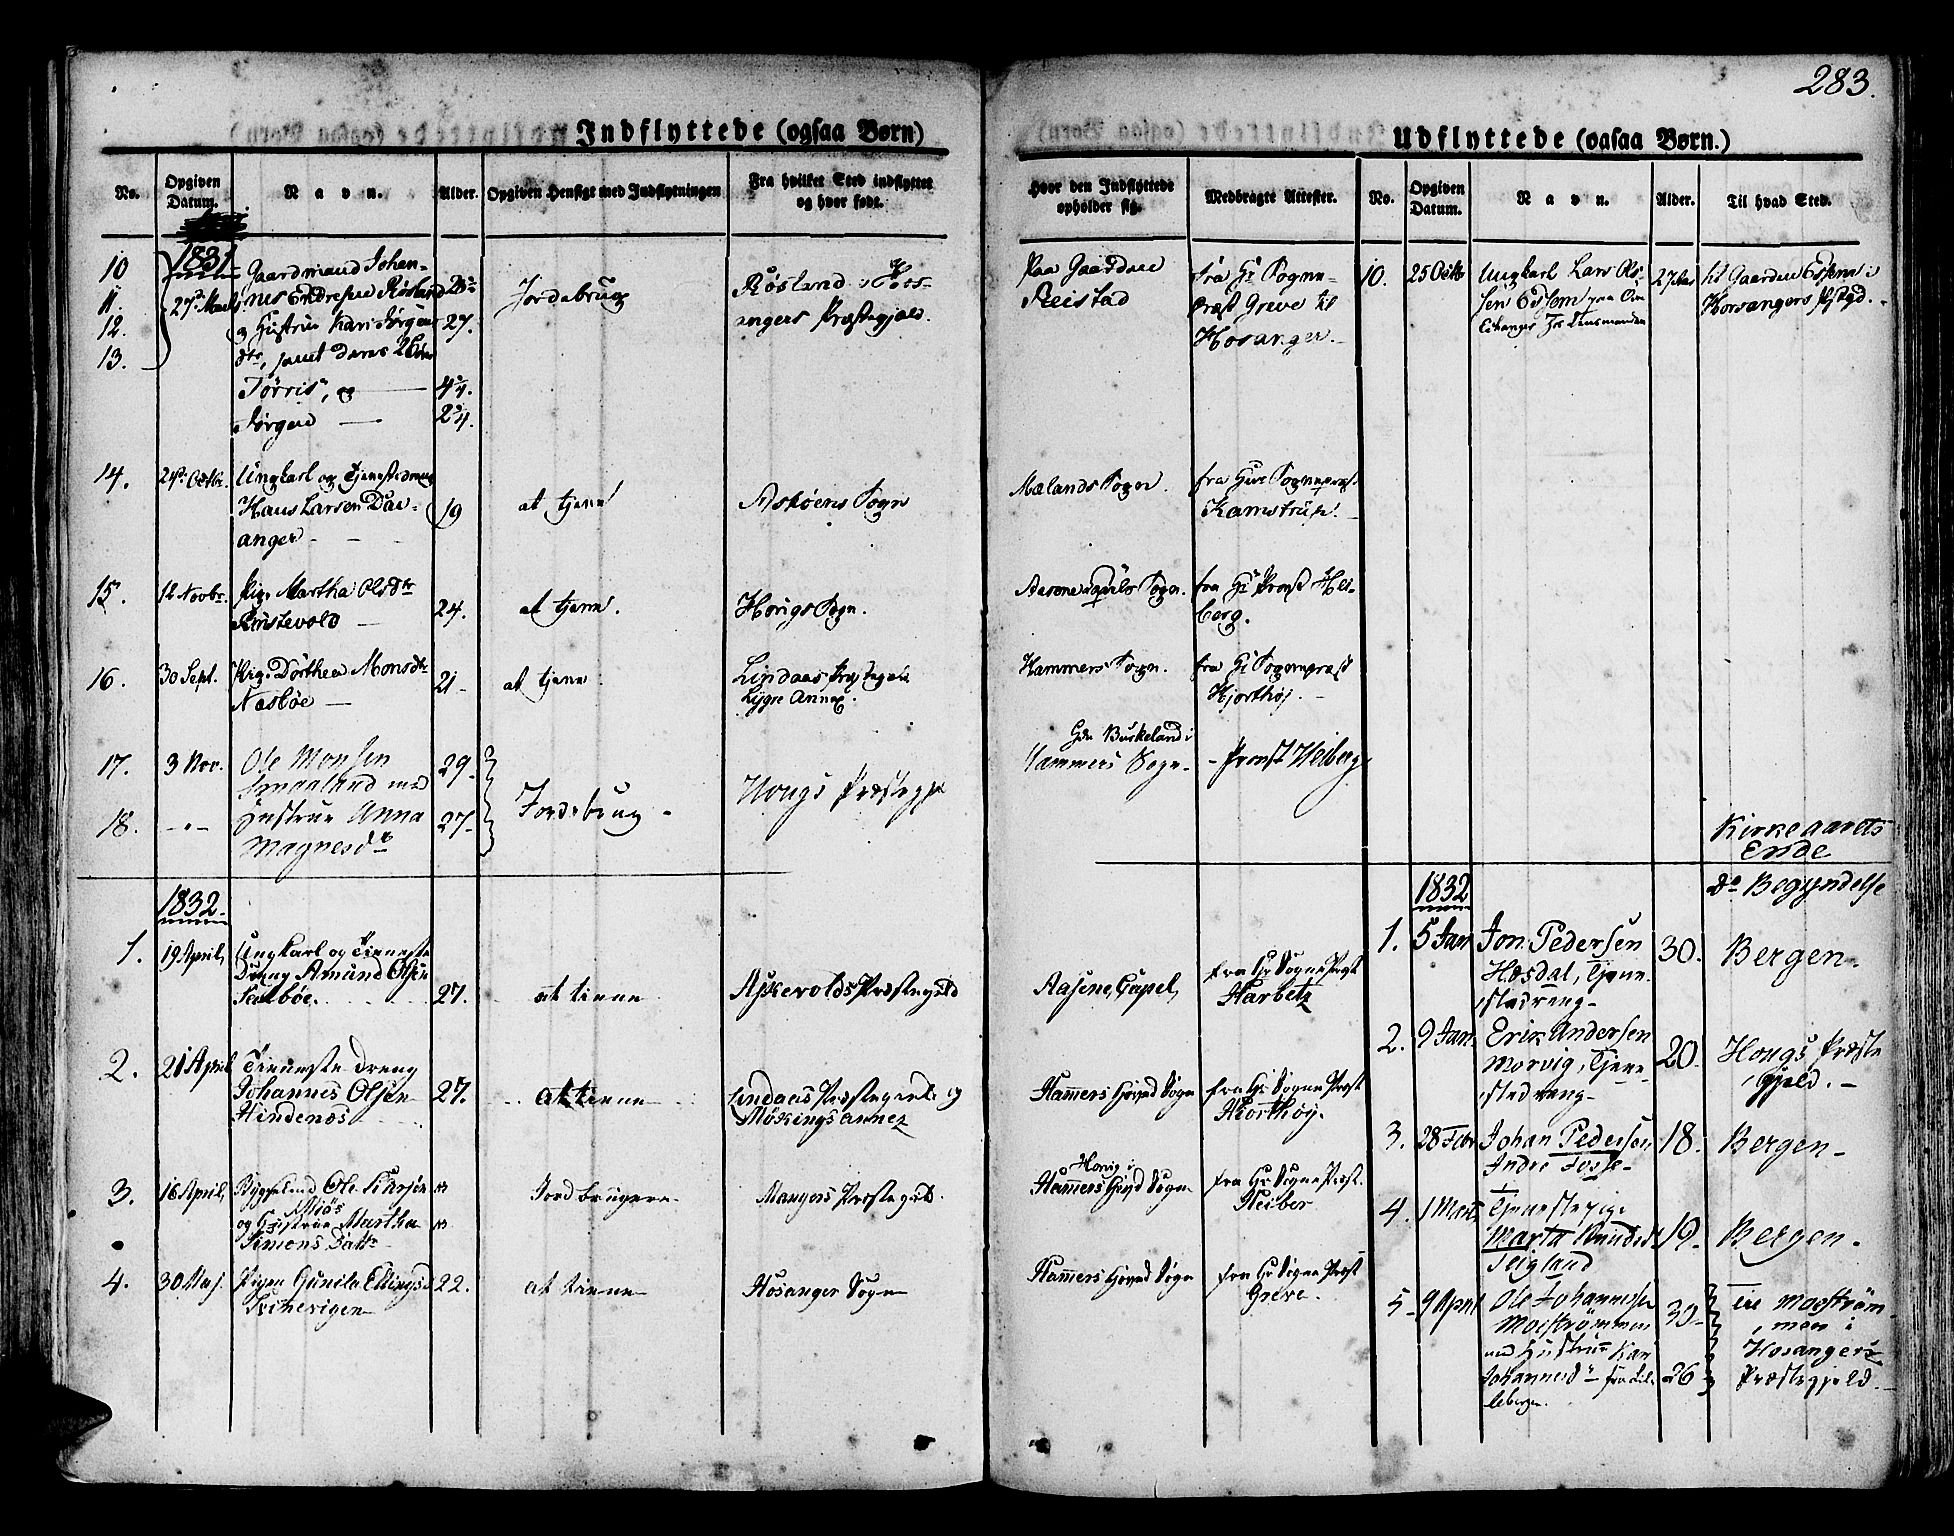 283.
Indflyttede (ogsaa Børn)
No.
Opgiven Datum.
Navn.
Alder.
Opgiven Hensigt med Indflytningen
Fra hvilket Sted indflyttet
og hvor født.
Hvor den Indflyttede
opholder sig.
Medbragte Attester.
10
11.
12.
13.
1831
27de Marts
Gaardmand Johan-
nes Endresen Røsland
og Hustrue Kari Jørgens
dtr, samt deres 2 Børn
Tørris, og
Jørgen
28
27.
4
2
Jordebrug
Røsland i Hos-
angers Præstegjæld.
Paa Gaarden
Reistad
fra Hr Sogne-
præst Greve til
Hosanger.
14.
24de Octbr.
Ungkarl og Tjenestedreng
Hans Larsen Dav-
anger
19
at tjene
Askøens Sogn
Mælands Sogn.
fra Hr Sognepræst
Kamstrup.
15.
12 Novbr.
Pig. Martha Olsdtr
Ristevold
24.
at tjene.
Hougs Sogn.
Aasene Capels Sogn.
fra Hr Provst Hei-
berg.
16.
30 Sept.
Pig. Dorthea Monsdtr
Næsbøe
21
at tjene
Lindaas Præstegield
Lygre Annex.
Hammers Sogn.
fra Hr Sognepræst
Hjorthøj.
17.
3 Nov.
Ole Monsen
Smaaland med
29.
18.
Hustrue Anna
Magnesdtr
27.
Jordebrug
Hougs Præstegjd
Gdn Buskeland i
Hammers Sogn
Provst Heiberg
1832
1.
19 April,
Ungkarl og Tieneste
Dreng Amund Olsen
Kalbøe.
27.
at tiene
Askevolds Præstegield
Aasene Capel,
fra Hr Sogne Præst
Harbetz
2.
21 April
Tieneste Dreng
Johannes Olsen
Hindenes
27.
at tiene
Lindaas Præstegield og
Møkings annex
Hammers Hoved Sogn
fra Hr Sogne Præst
Hiorthøy.
3.
16 April,
Ole Larsen
Miøs
og Hustrue Martha
Simons Datter
Jordbrugere
Mangers Præstegield.
Honig i
Hammers Hoved Sogn
fra Hr Sogne Præst.
Heiber
4.
30 Maj.
Pigen Gunila Ellingsd
Svinevigen
22.
at tiene
Hosanger Sogn
Hammers Hoved Sogn
fra Hr Sogne Præst
Greve.
Udflyttede (ogsaa Børn.)
No.
Opgiven Datum.
Navn.
Alder.
Til hvad Sted.
10.
25 Octbr
Ungkarl Lars Ols-
sen Edlom
27 Aar
til Gaarden Essem i
Horsangers Pstgd.
Kirkeaarets
Ende
1832
Do Begyndelse
1.
5 Jan
Jon Pedersen
Hæsdal, Tjene-
stedreng
30.
Bergen.
2.
9 Jan.
Erik Andersen
Morvig, Tjene-
stedreng
20
Hougs Præste
gjeld.
3.
28 Febr
Johan Pedersen
Indre Fosse
18.
Bergen
4.
1 Marts
Tjenestepige
Marta Knudsdtr
Teigland
19.
Bergen.
5
9 April
Ole Johannesen
Moestrømmen
med Hustrue Kari
Johannesd fra Lil-
lebergen.
30
26
til Moestrøm-
men i
Hosangers
Præstegjeld.